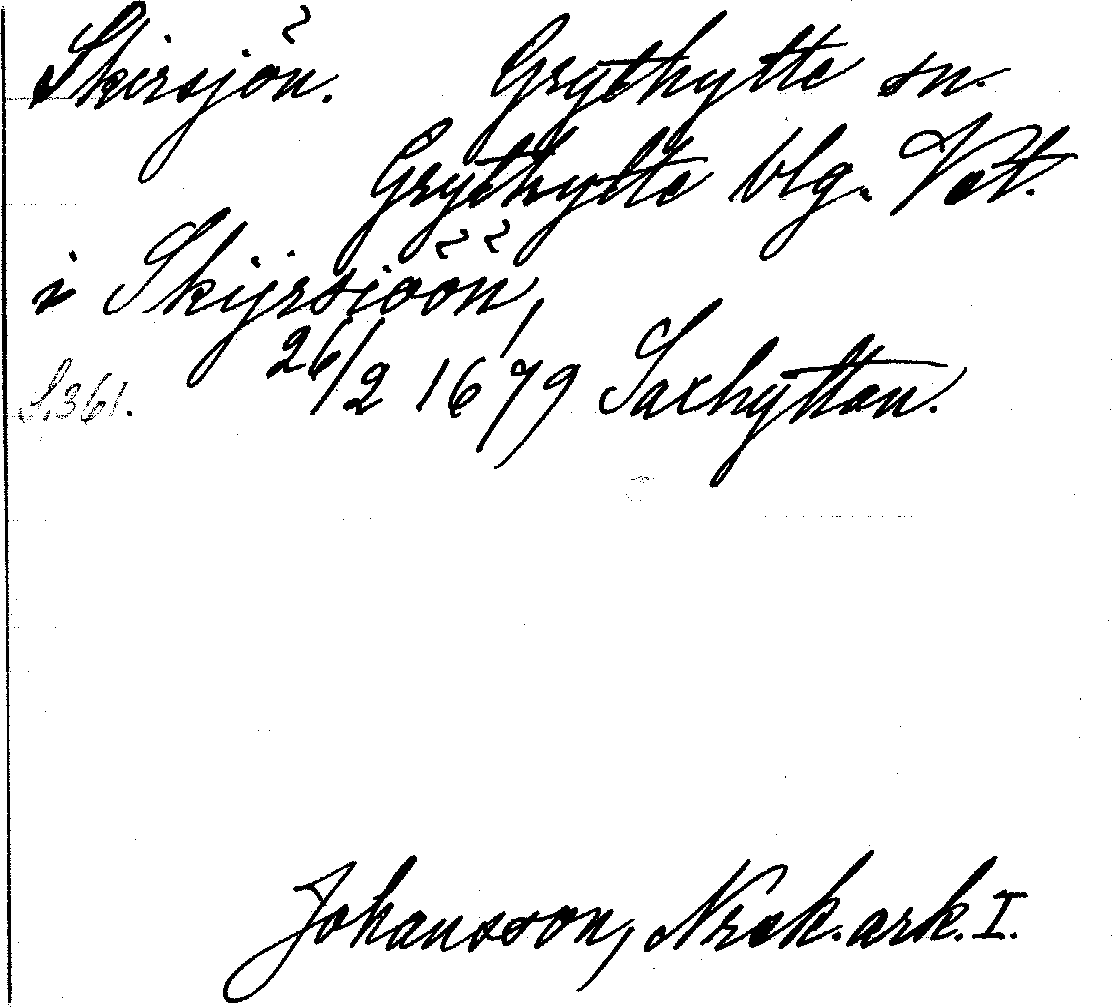 Skirsjön. Grythytte sn.
Grythytte blg. Vst.
i Skijrsiöön,
S.361. 26/2 1679 Saxhyttan.
Johansson, Norak. ark. I.